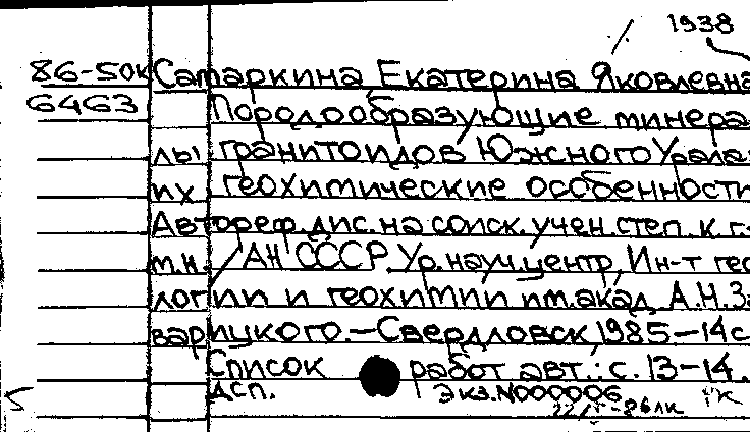 1938
86-50к Сатаркина Екатерина Яковлевна
6463 Породообразующие минера
лы гранитоидов Южного Урала
их геохимические особенности
Автореф.дис.на соиск.учен.степ.к.г-
м.н. /АН СССР, Ур.науч.центр, Ин-т гео
логии и геохимии им.акад. А.Н.За
варицкого.—Свердловск, 1985—14с
Список работ авт.: с.13-14.
Дсп. Экз.N000006